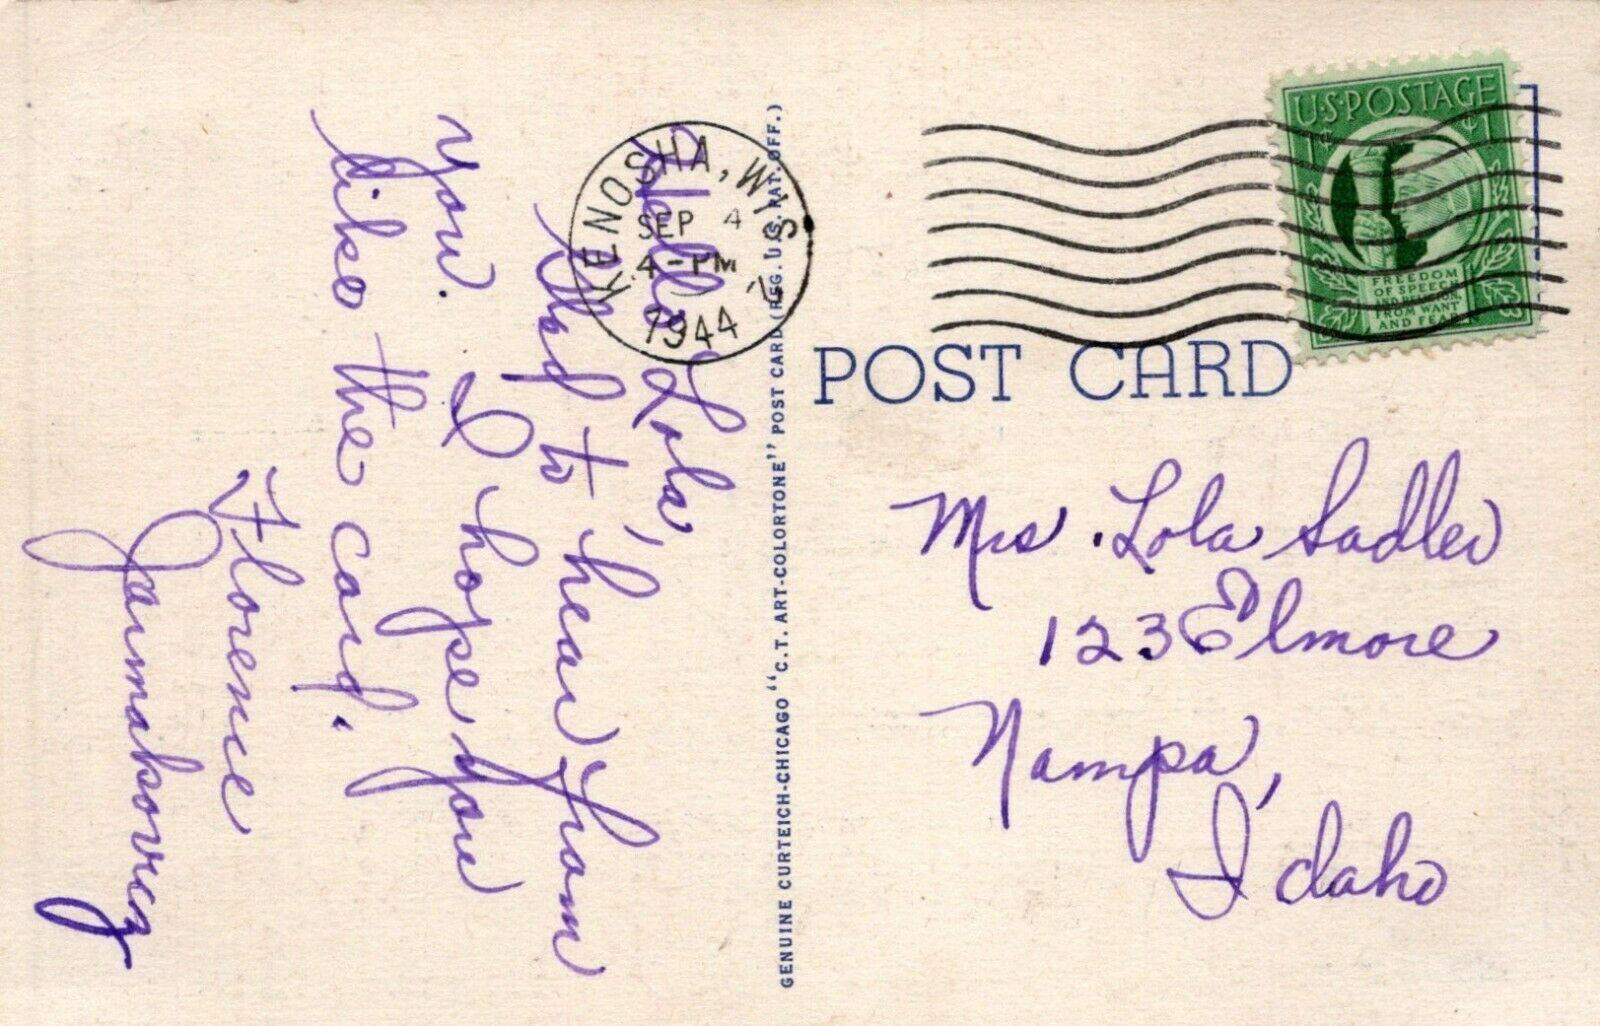 Hello Lola,
Glad to hear from
you. I hope you
like the card.
Florence
Jarmakovicz
GENUINE CURTEICH-CHICAGO "C.T. ART-COLORTONE" POST CARD (REG. U.S. PAT. OFF.)
KENOSHA, WIS.
SEP 4
4-PM
1944
U.S. POSTAGE
1¢ 1¢
FREEDOM
OF SPEECH
AND RELIGION,
FROM WANT
AND FEAR
POST CARD
Mrs. Lola Sadler
123 Elmore
Nampa,
Idaho